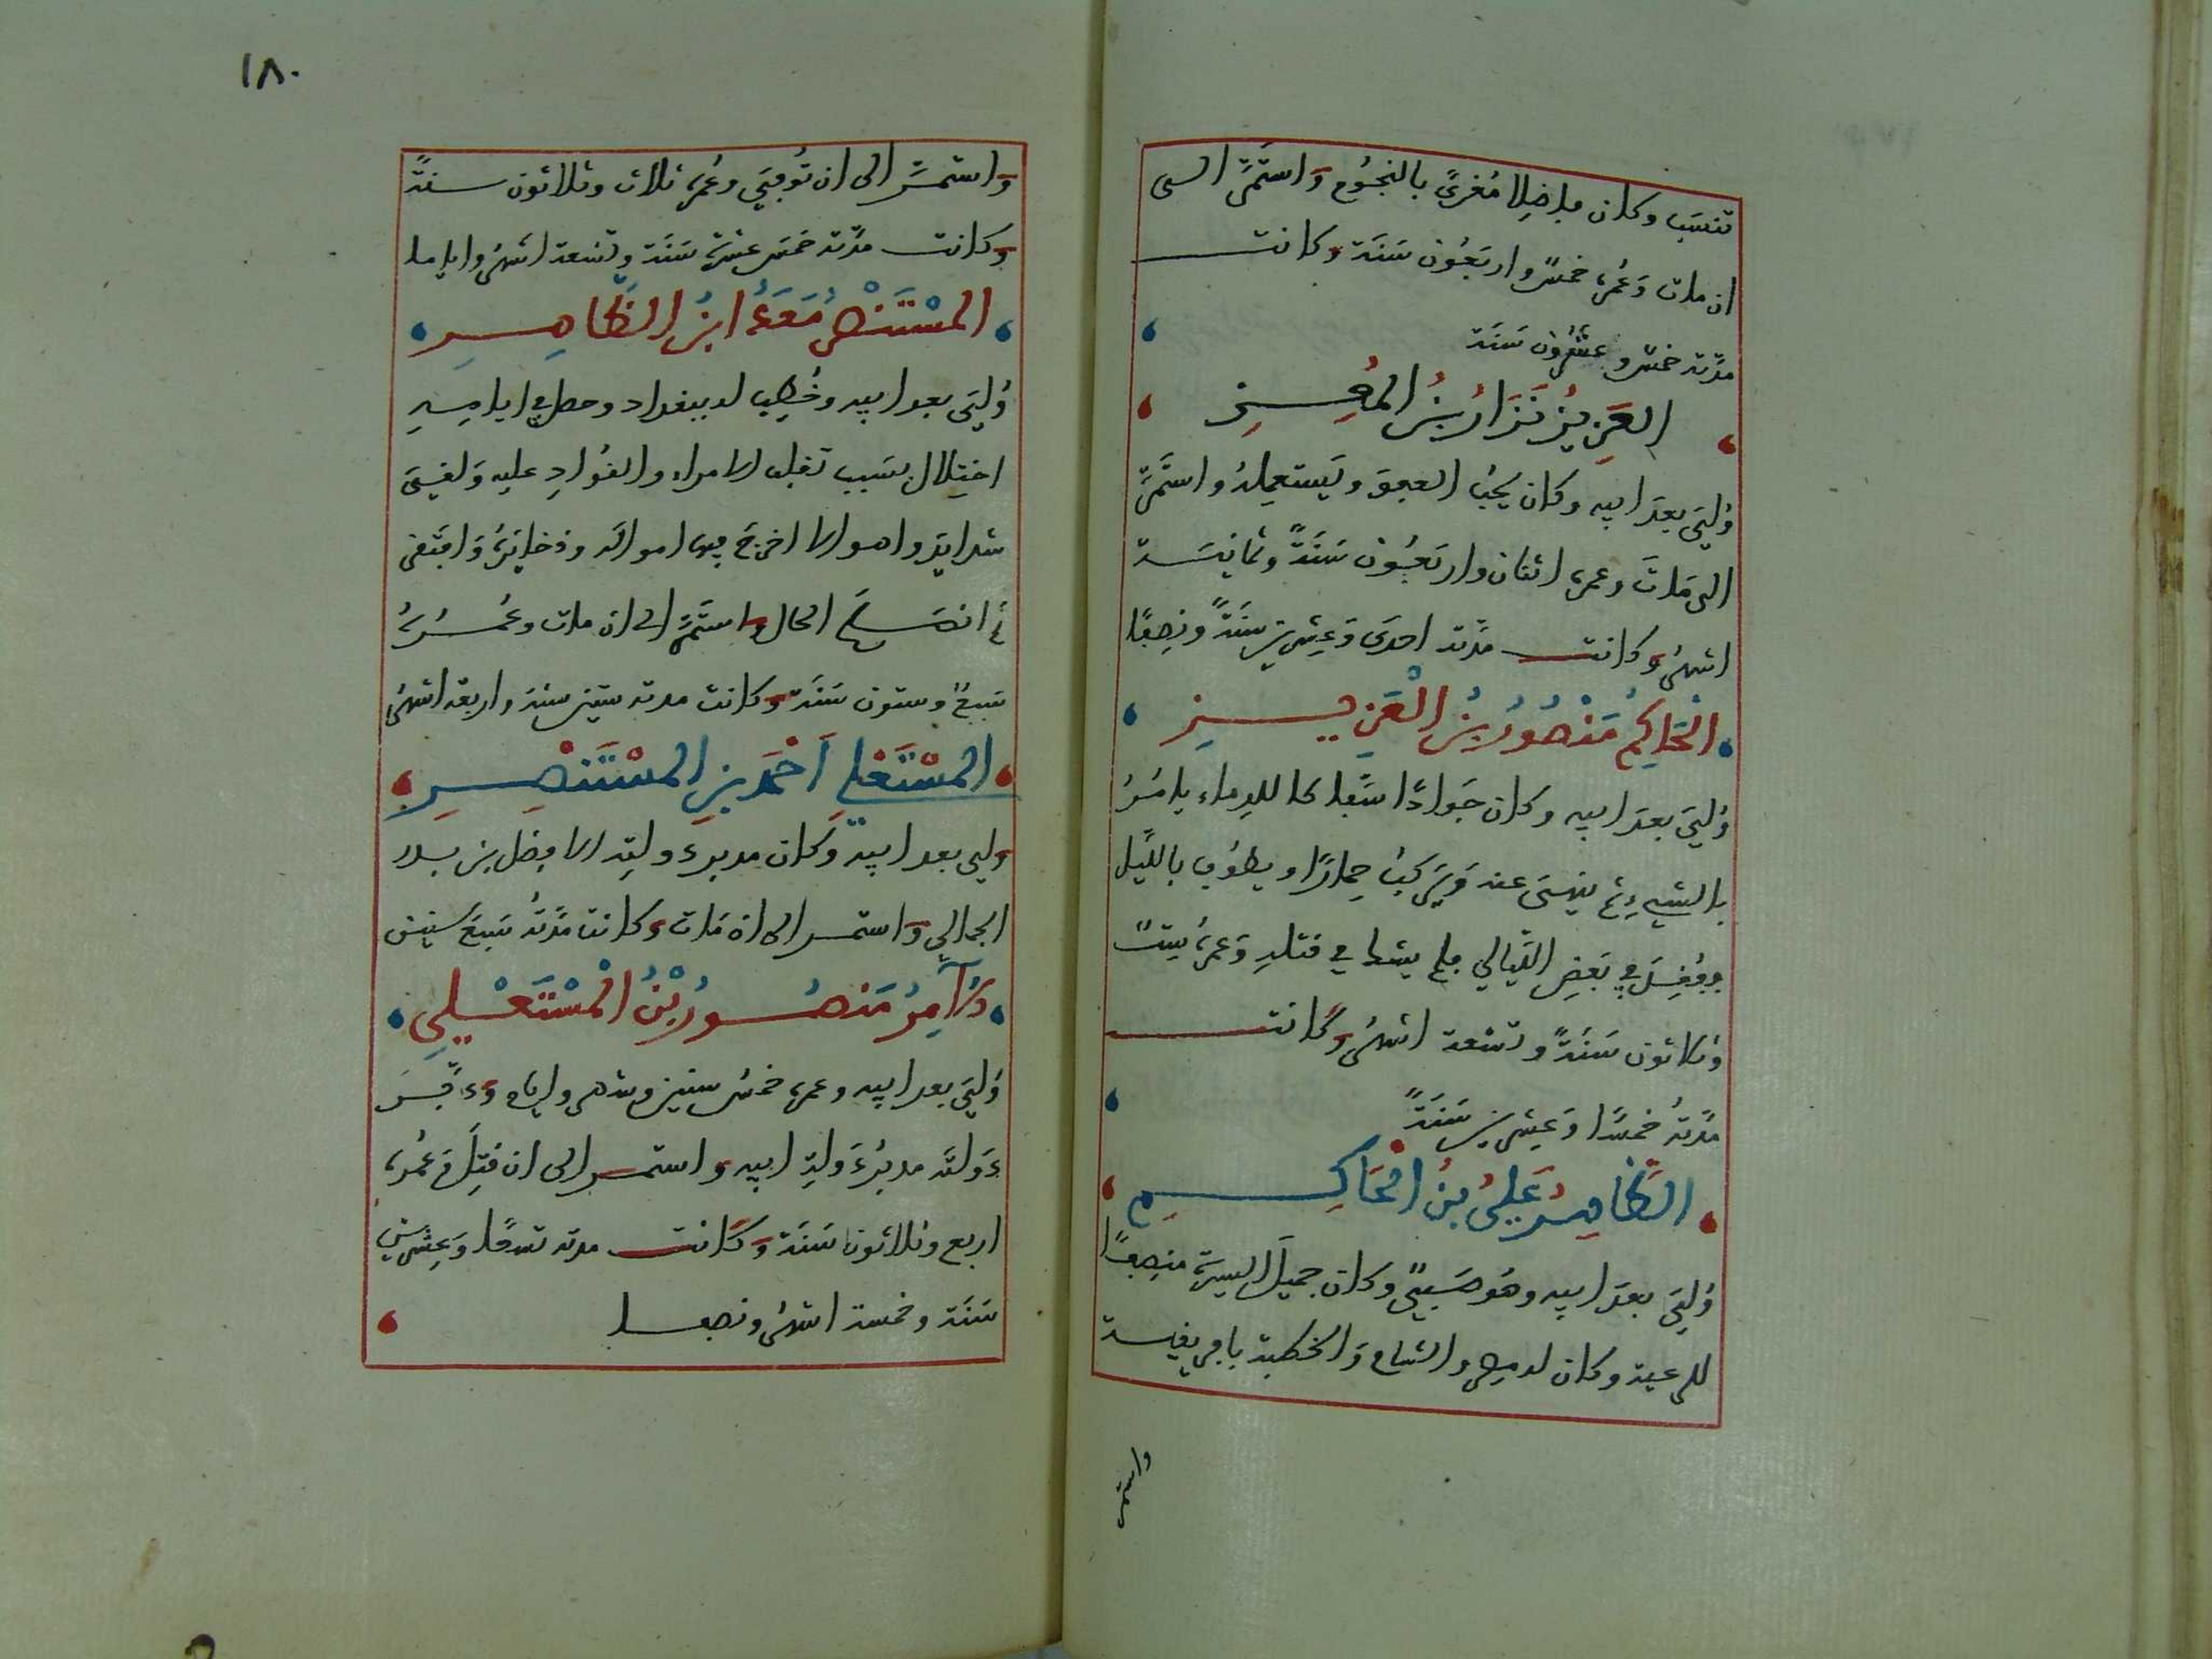 تنسَب وكان فاضلا مُغرىً بالنجُوم وَاستَمَرَّ الى
ان مات وَعُمره خمسٌ واربَعُون سَنَة وكانت
مدّته خمس وعشرُون سَنَة
العَزِيزُ نَزَارُ بْنُ المُعِزِ
وُلِيَ بعدَ ابيه وكان يُحبُّ العفو وَيَستعمِلهُ واستَمَرَّ
الى مَاتَ وعمره اثنان واربَعُون سَنَةً وثمانيَة
اشهر وكانت مدّته احدَى وَعِشرِين سَنَةً ونِصفًا
الْحَاكِمُ مَنْصُورُ بْنُ الْعَزِيزِ
وُلِيَ بعدَ ابيه وكان جَوادًا سَفاكا للدماء يامُرُ
بالشيءِ ثم ينهَى عنه وَيَركَبُ حِمارًا ويطوُف بالليْل
ففُقِدَ في بَعضِ اللّيالي فلم يشكّ في قتلهِ وَعمره سِتٌّ
وثلاثون سَنَةً وتسْعة اشهُر وكانت
مدّتهُ خمسًا وَعِشرِين سَنَةً
الظَّاهِرُ عَلِيُّ بنُ الْحَاكِمِ
وُلِيَ بعدَ ابيه وهُو صَبيٌّ وكان جميلَ السيرَة منصِفًا
للرعية وكان له مِصر والشام وَالخطبة بافريقية
واستمر
١٨٠
وَاستمرَّ الى ان تُوفيَ وعُمره ثلاث وثلاثون سنةً
وَكانت مدّته خمسَ عشرَة سَنَة وتسْعة اشهُر واياما
المسْتَنْصر مَعَدُّ ابنُ الظَّاهِرِ
وُلِيَ بعد ابيه وخُطِب له ببغداد وحصل في ايامِهِ
اختِلال بسَبب تغلب الامراء والقُوادِ عليه وَلقيَ
شدايدَ واهوالا اخرجَ فيها اموالَه وذخايَرهُ وَافتَقر
ثم انصَلحَ الحال واستَمَرَّ الى ان مات وعُمُرهُ
سَبعٌ وستون سَنَة وَكانت مدته ستين سنة واربعة اشهر
المسْتَعْلي اَحْمَد بنِ المسْتَنْصِرِ
وَلي بعد ابيه وَكان مدبر دولتِه الافضل بن بدر
الجمالي وَاستمر الى ان مَات وَكانت مدّتهُ سَبعَ سنين
الآمِرُ مَنصُورُ بْنُ الْمُسْتَعْلِي
وُلِيَ بعد ابيه وعمره خمسُ سنين وشهر وايام وَدَبَّرَ
دَولتَه مدبِّرُ دَولةِ ابيه وَاستمر الى ان قتِلَ وَعُمره
اربع وثلاثون سَنَة وَكَانت مدته تسعًا وَعِشرِين
سَنَة وخمسة اشهُر ونصفا